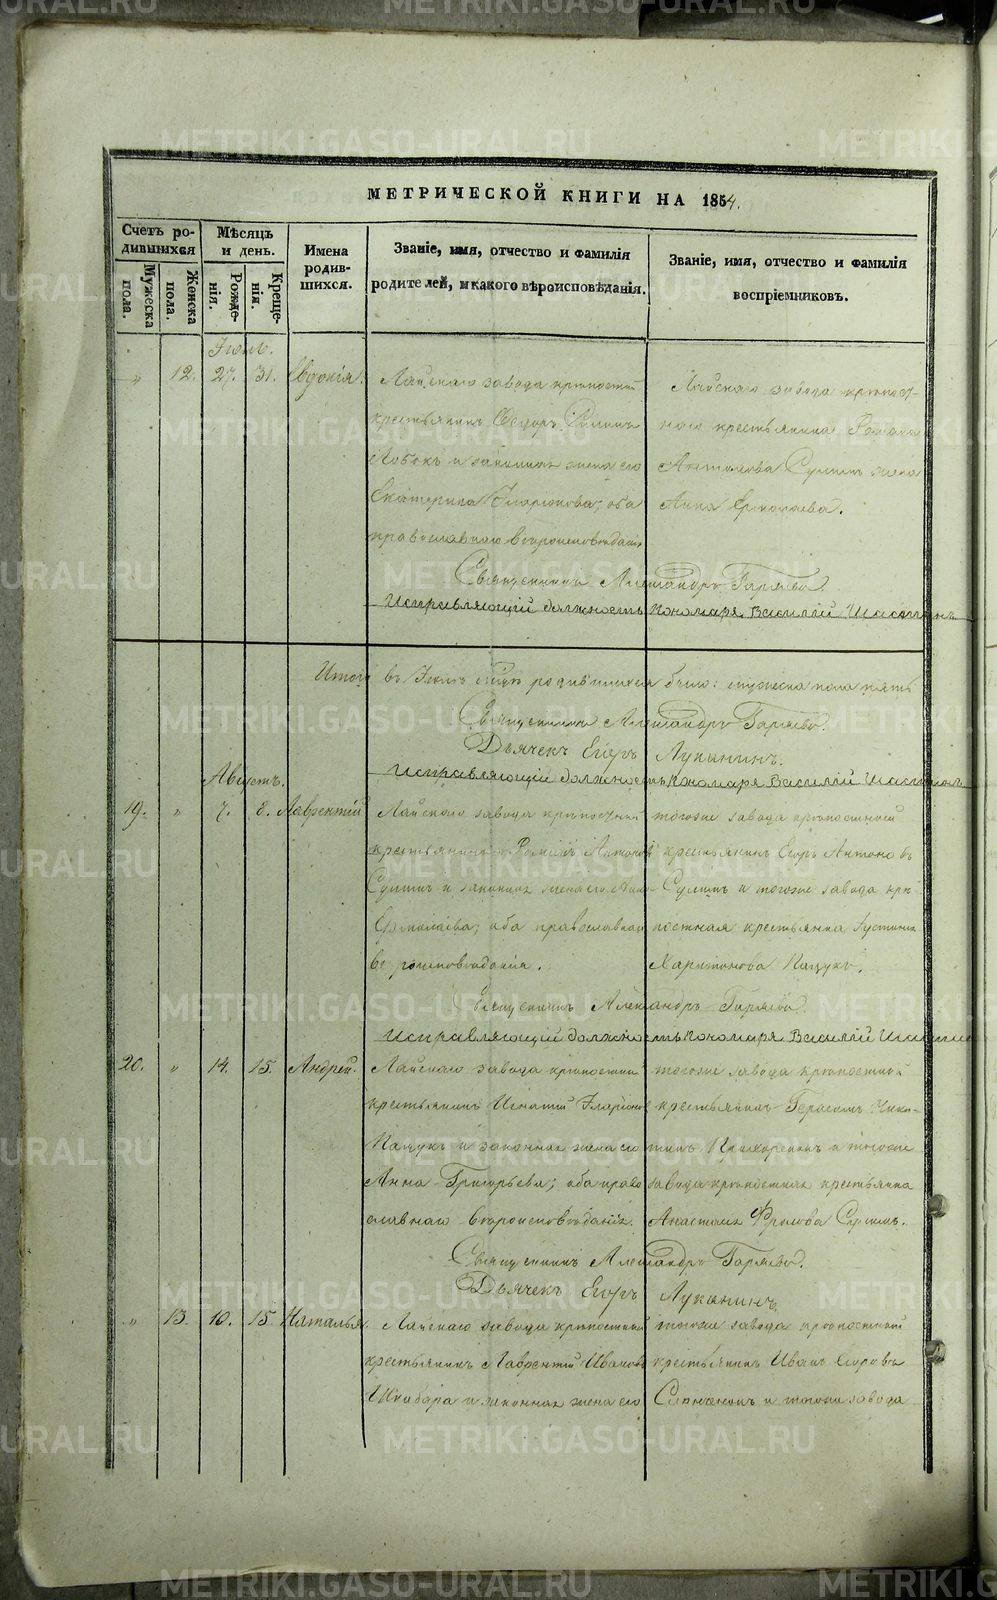 МЕТРИЧЕСКОЙ КНИГИ НА 1854.
Счетъ ро-
дившихся
Мѣсяцъ
и день.
Имена
родив-
шихся.
Званіе, имя, отчество и фамилія
родителей, и какого вѣроисповѣданія.
Званіе, имя, отчество и фамилія
воспріемниковъ.
Мужеска
пола.
Женска
пола.
Рожде-
нія.
Креще-
нія.
Іюль.
" 12. 27. 31. Евдокія.
Лайскаго завода крѣпостной
крестьянинъ Ѳедоръ
и законная жена его
Екатерина Иларіонова, оба
православнаго вѣроисповѣданія
Лайскаго завода крѣпост-
наго крестьянина Романа
Антонова жена
Анна Ермолаева.
Священникъ Александръ Гаряевъ.
Исправляющій должность Пономаря Василій
Итого въ Іюлѣ родившихся было: мужеска пола пять
Священникъ Александръ Гаряевъ.
Дьячекъ Егоръ Лукынинъ.
Исправляющій должность Пономаря Василій
Августъ.
19. " 7. 8. Лаврентій
Лайскаго завода крѣпостной
крестьянинъ Романъ Антоновъ
и законная жена его Анна
Ермолаева, оба православнаго
вѣроисповѣданія.
тогоже завода крѣпостной
крестьянинъ Егоръ Антоновъ
и тогоже завода крѣ-
постная крестьянка
Харитонова Пацукъ.
Священникъ Александръ Гаряевъ
Исправляющій должность Пономаря Василій
20. " 14. 15. Андрей.
Лайскаго завода крѣпостной
крестьянинъ Игнатій Иларіоновъ
Пацукъ и законная жена его
Анна Григорьева; оба право
славнаго вѣроисповѣданія.
тогоже завода крѣпостный
крестьянинъ Герасимъ Ники-
тинъ и тогоже
завода крѣпостная крестьянка
Анастасія Фролова
Священникъ Александръ Гаряевъ.
Дьячекъ Егоръ Лукынинъ.
" 13. 10. 15. Наталья.
Лайскаго завода крѣпостный
крестьянинъ Лаврентій Ивановъ
и законная жена его
тогоже завода крѣпостной
крестьянинъ Иванъ Егоровъ
и тогоже завода
METRIKI.GASO-URAL.RU